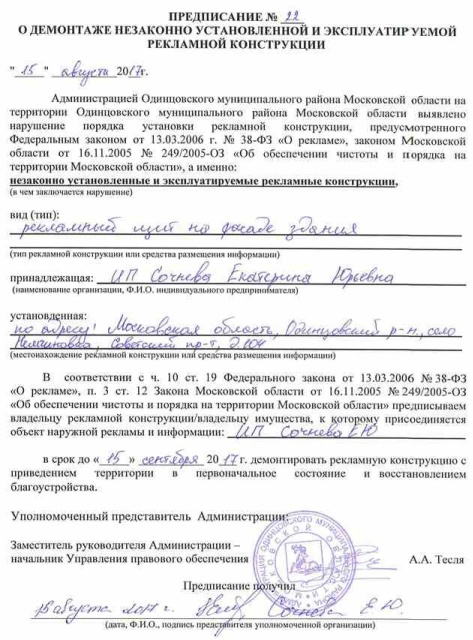 ПРЕДПИСАНИЕ № 22
О ДЕМОНТАЖЕ НЕЗАКОННО УСТАНОВЛЕННОЙ И ЭКСПЛУАТИРУЕМОЙ
РЕКЛАМНОЙ КОНСТРУКЦИИ
"15" августа 2017г.
Администрацией Одинцовского муниципального района Московской области на
территории Одинцовского муниципального района Московской области выявлено
нарушение порядка установки рекламной конструкции, предусмотренного
Федеральным законом от 13.03.2006 г. № 38-ФЗ «О рекламе», законом Московской
области от 16.11.2005 № 249/2005-ОЗ «Об обеспечении чистоты и порядка на
территории Московской области», а именно:
незаконно установленные и эксплуатируемые рекламные конструкции,
(в чем заключается нарушение)
вид (тип):
рекламный щит на фасаде здания
(тип рекламной конструкции или средства размещения информации)
принадлежащая: ИП Сочнева Екатерина Юрьевна
(наименование организации, Ф.И.О. индивидуального предпринимателя)
установленная:
по адресу: Московская область, Одинцовский р-н, село
Немчиновка, Советский пр-т, д. 104
(местонахождение рекламной конструкции или средства размещения информации)
В соответствии с ч. 10 ст. 19 Федерального закона от 13.03.2006 № 38-ФЗ
«О рекламе», п. 3 ст. 12 Закона Московской области от 16.11.2005 № 249/2005-ОЗ
«Об обеспечении чистоты и порядка на территории Московской области» предписываем
владельцу рекламной конструкции/владельцу имущества, к которому присоединяется
объект наружной рекламы и информации: ИП Сочнева Е Ю
в срок до «15» сентября 2017г. демонтировать рекламную конструкцию с
приведением территории в первоначальное состояние и восстановлением
благоустройства.
Уполномоченный представитель Администрации:
Заместитель руководителя Администрации –
начальник Управления правового обеспечения
А.А. Тесля
Предписание получил
августа 2017 г. Сочнева Е. Ю.
(дата, Ф.И.О., подпись представителя уполномоченной организации)